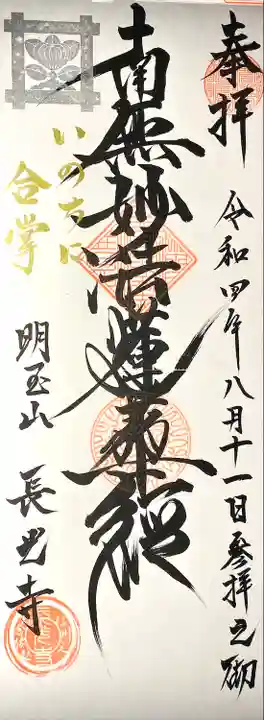 奉拝
令和四年八月十一日参拝之砌
南無妙法蓮華経
いのちに
合掌
明玉山
長光寺